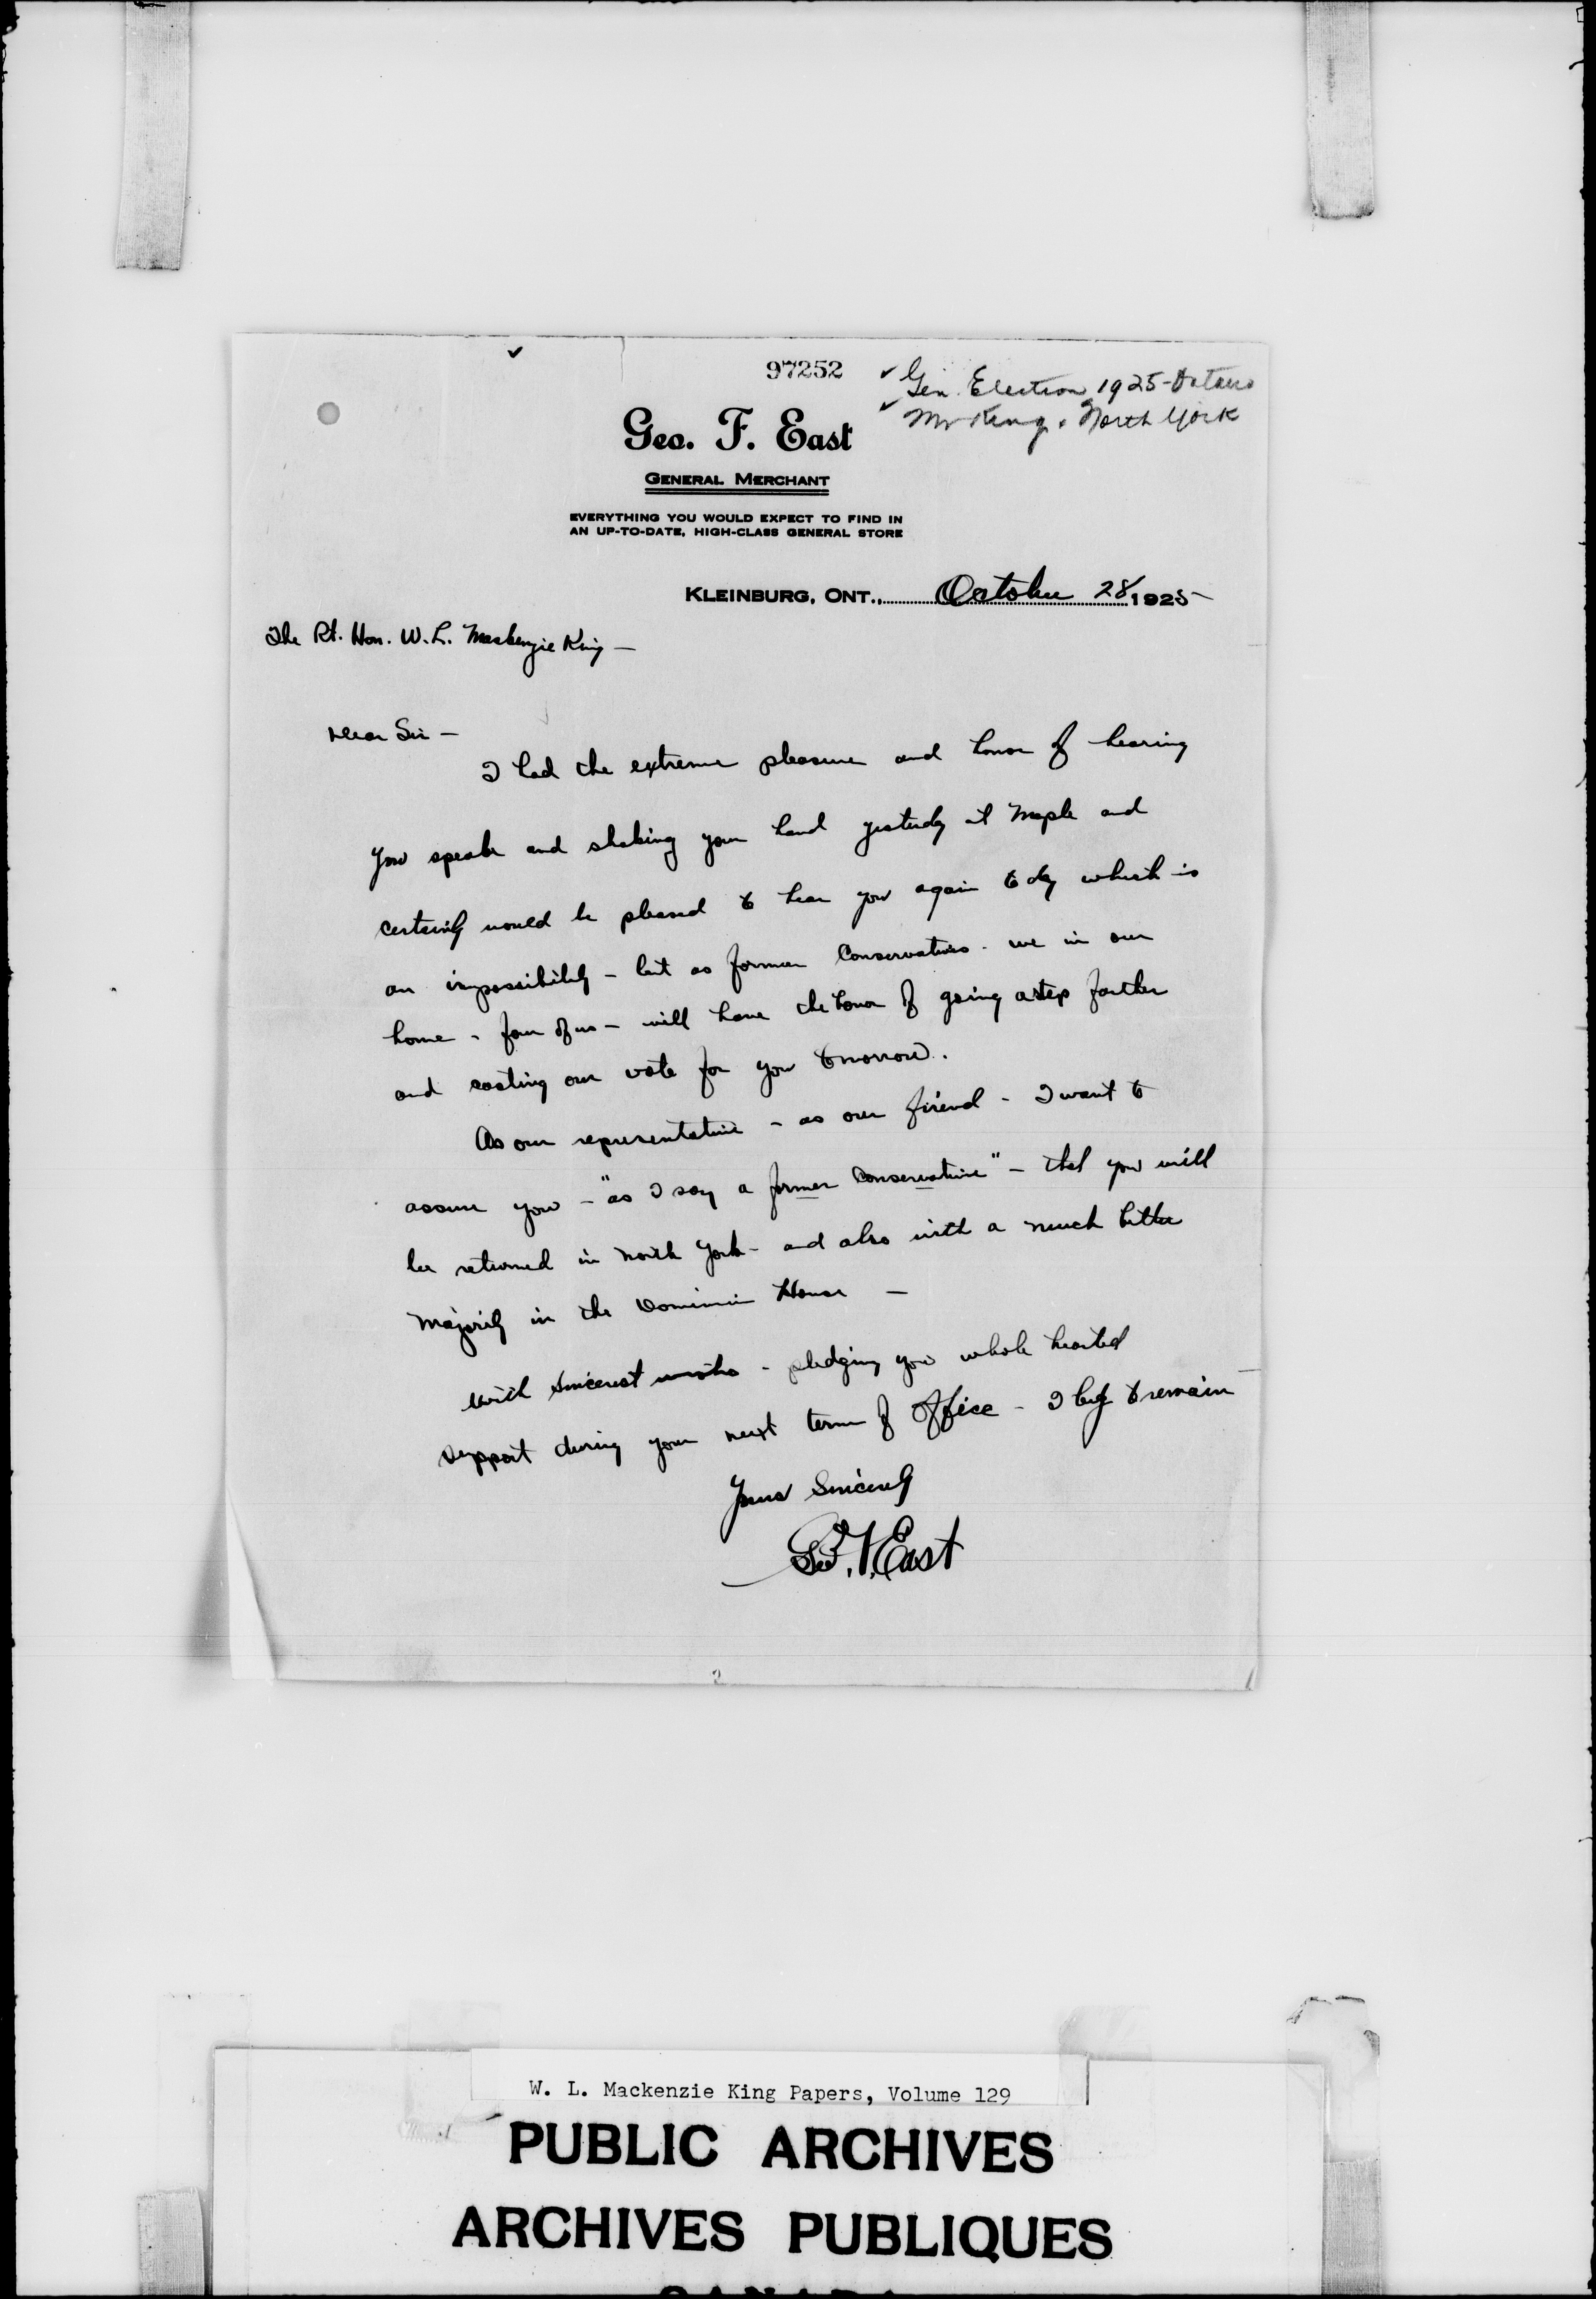 97252
Gen. Election 1925-Ontario
Mr King. North York
Geo. F. East
GENERAL MERCHANT
EVERYTHING YOU WOULD EXPECT TO FIND IN
AN UP-TO-DATE, HIGH-CLASS GENERAL STORE
KLEINBURG, ONT., October 28 1925-
The Rt. Hon. W. L. Mackenzie King -
Dear Sir -
I had the extreme pleasure and honor of hearing
you speak and shaking your hand yesterday at Maple and
certainly would be pleased to hear you again to day which is
an impossibility - but as former Conservatives - we in our
home - four of us - will have the honor of going a step farther
and casting our vote for you tomorrow.
As our representative - as our friend - I want to
assure you - "as I say a former Conservative" - that you will
be returned in North York - and also with a much better
majority in the Dominion House -
With sincerest wishes - pledging you whole hearted
support during your next term of Office - I beg to remain -
Yours Sincerely
Geo. F. East
W. L. Mackenzie King Papers, Volume 129
PUBLIC ARCHIVES
ARCHIVES PUBLIQUES
CANADA